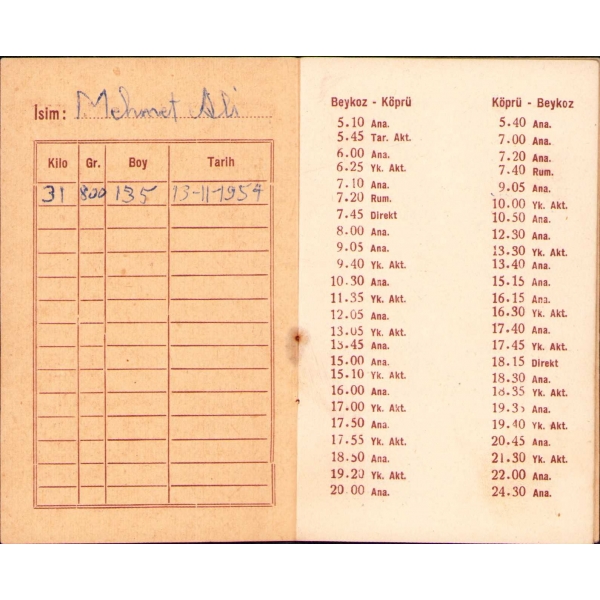 İsim: Mehmet Ali
Kilo Gr. Boy Tarih
31 800 135 13-11-1954
Beykoz - Köprü
5.10 Ana.
5.45 Tar. Akt.
6.00 Ana.
6.25 Yk. Akt.
7.10 Ana.
7.20 Rum.
7.45 Direkt
8.00 Ana.
9.05 Ana.
9.40 Yk. Akt.
10.30 Ana.
11.35 Yk. Akt.
12.05 Ana.
13.05 Yk. Akt.
13.45 Ana.
15.00 Ana.
15.10 Yk. Akt.
16.00 Ana.
17.00 Yk. Akt.
17.50 Ana.
17.55 Yk. Akt.
18.50 Ana.
19.20 Yk. Akt.
20.00 Ana.
Köprü - Beykoz
5.40 Ana.
7.00 Ana.
7.20 Ana.
7.40 Rum.
9.05 Ana.
10.00 Yk. Akt.
10.50 Ana.
12.30 Ana.
13.30 Yk. Akt.
13.40 Ana.
15.15 Ana.
16.15 Ana.
16.30 Yk. Akt.
17.40 Ana.
17.45 Yk. Akt.
18.15 Direkt
18.30 Ana.
18.35 Yk. Akt.
19.35 Ana.
19.40 Yk. Akt.
20.45 Ana.
21.30 Yk. Akt.
22.00 Ana.
24.30 Ana.